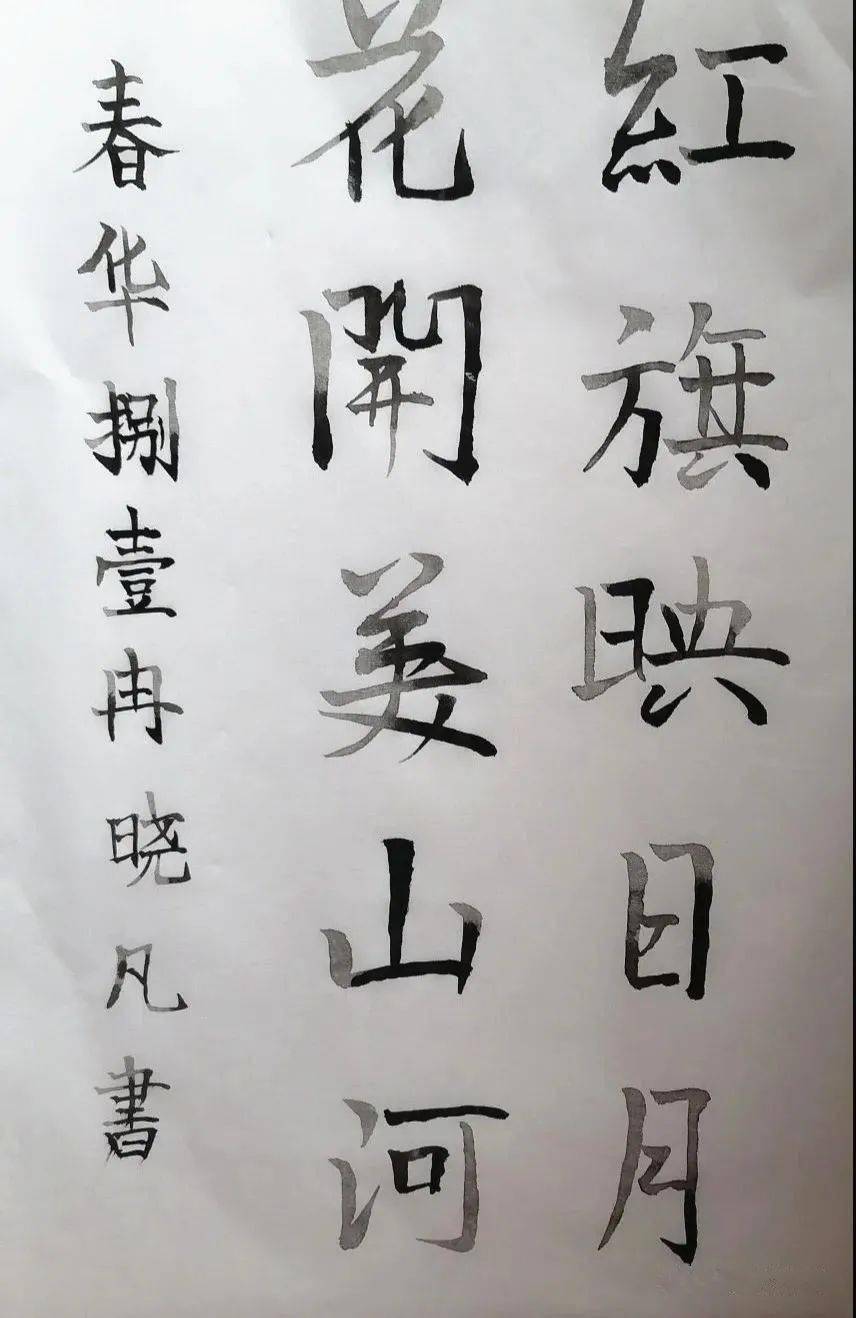 紅旗映日月
花開美山河
春华捌壹冉晓凡書